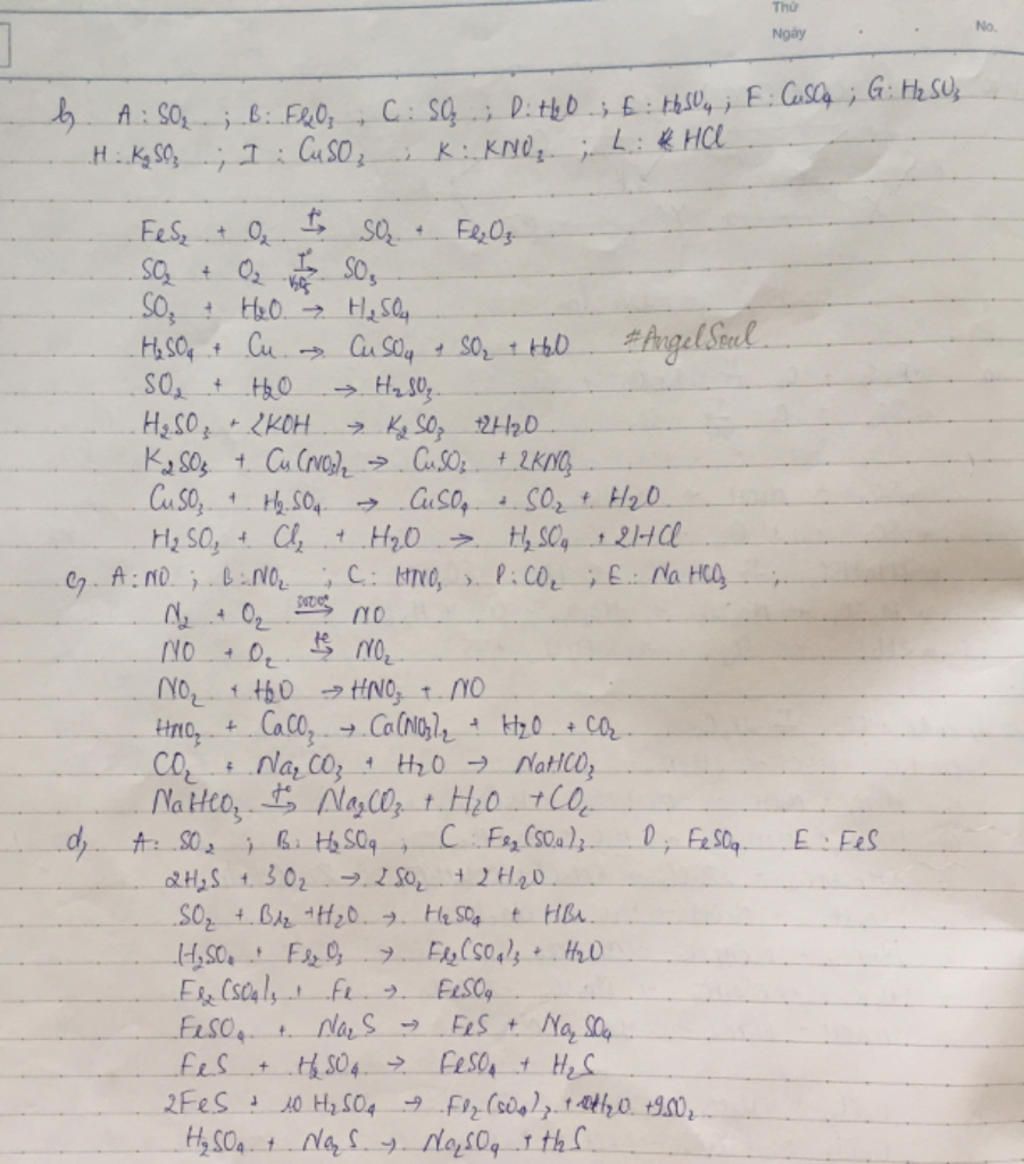 Thứ
Ngày No.
b, A : SO₂ ; B : Fe₂O₃ , C : SO₃ ; D : H₂O ; E : H₂SO₄ ; F : CuSO₄ ; G : H₂SO₃
H : K₂SO₃ ; I : CuSO₃ ; K : KNO₃ ; L : HCl
FeS₂ + O₂ →(t°) SO₂ + Fe₂O₃
SO₂ + O₂ →(T°, V₂O₅) SO₃
SO₃ + H₂O → H₂SO₄
H₂SO₄ + Cu → CuSO₄ + SO₂ + H₂O #AngelSoul
SO₂ + H₂O → H₂SO₃
H₂SO₃ + 2KOH → K₂SO₃ + 2H₂O
K₂SO₃ + Cu(NO₃)₂ → CuSO₃ + 2KNO₃
CuSO₃ + H₂SO₄ → CuSO₄ + SO₂ + H₂O
H₂SO₃ + Cl₂ + H₂O → H₂SO₄ + 2HCl
c, A : NO ; B : NO₂ ; C : HNO₃ , D : CO₂ ; E : NaHCO₃ ;
N₂ + O₂ → NO
NO + O₂ →(t°) NO₂
NO₂ + H₂O → HNO₃ + NO
HNO₃ + CaCO₃ → Ca(NO₃)₂ + H₂O + CO₂
CO₂ + Na₂CO₃ + H₂O → NaHCO₃
NaHCO₃ →(t°) Na₂CO₃ + H₂O + CO₂
d, A : SO₂ ; B : H₂SO₄ ; C : Fe₂(SO₄)₃ D ; FeSO₄ E : FeS
2H₂S + 3O₂ → 2SO₂ + 2H₂O
SO₂ + Br₂ + H₂O → H₂SO₄ + HBr
H₂SO₄ + Fe₂O₃ → Fe₂(SO₄)₃ + H₂O
Fe₂(SO₄)₃ + Fe → FeSO₄
FeSO₄ + Na₂S → FeS + Na₂SO₄
FeS + H₂SO₄ → FeSO₄ + H₂S
2FeS + 10H₂SO₄ → Fe₂(SO₄)₃ + H₂O + 9SO₂
H₂SO₄ + Na₂S → Na₂SO₄ + H₂S